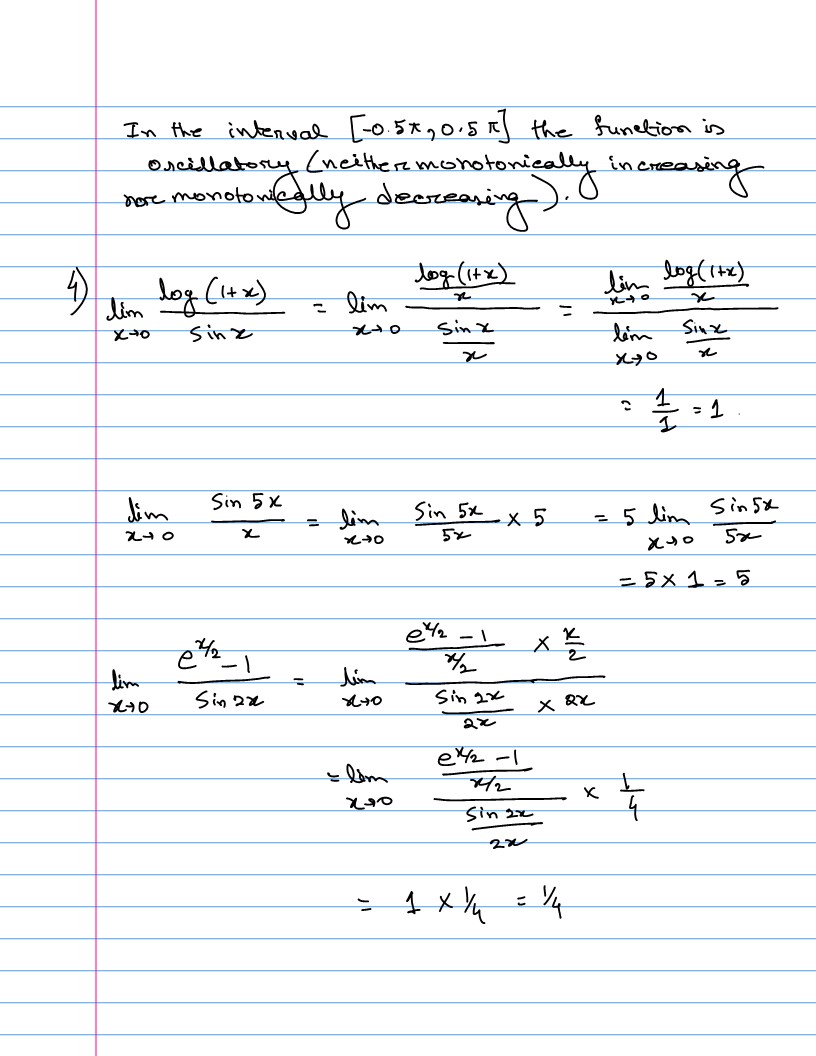 In the interval [-0.5π, 0.5π] the function is
oscillatory (neither monotonically increasing
nor monotonically decreasing).
4) lim x→0 log(1+x) / sin x = lim x→0 (log(1+x)/x) / (sin x/x) = (lim x→0 log(1+x)/x) / (lim x→0 sin x/x)
= 1/1 = 1
lim x→0 sin 5x / x = lim x→0 sin 5x / 5x × 5 = 5 lim x→0 sin 5x / 5x
= 5 × 1 = 5
lim x→0 (e^(x/2) - 1) / sin 2x = lim x→0 ((e^(x/2) - 1)/(x/2) × x/2) / (sin 2x/2x × 2x)
= lim x→0 ((e^(x/2) - 1)/(x/2)) / (sin 2x/2x) × 1/4
= 1 × 1/4 = 1/4